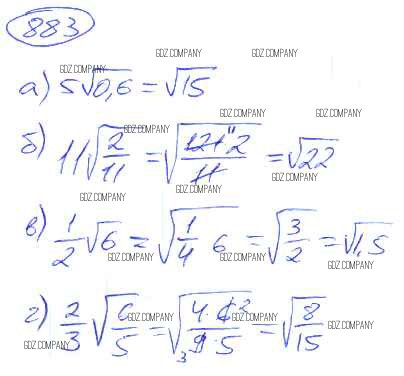 883
GDZ.COMPANY GDZ.COMPANY
GDZ.COMPANY
а) 5√0,6 = √15
GDZ.COMPANY GDZ.COMPANY
GDZ.COMPANY
б) 11√(2/11) = √(121 11 2/11) = √22
GDZ.COMPANY
GDZ.COMPANY
GDZ.COMPANY
в) 1/2 √6 = √(1/4 6) = √(3/2) = √1,5
GDZ.COMPANY GDZ.COMPANY GDZ.COMPANY
г) 2/3 √(6/5) = √(4·6 2/3 9·5) = √(8/15)
GDZ.COMPANY GDZ.COMPANY GDZ.COMPANY
GDZ.COMPANY GDZ.COMPANY GDZ.COMPANY